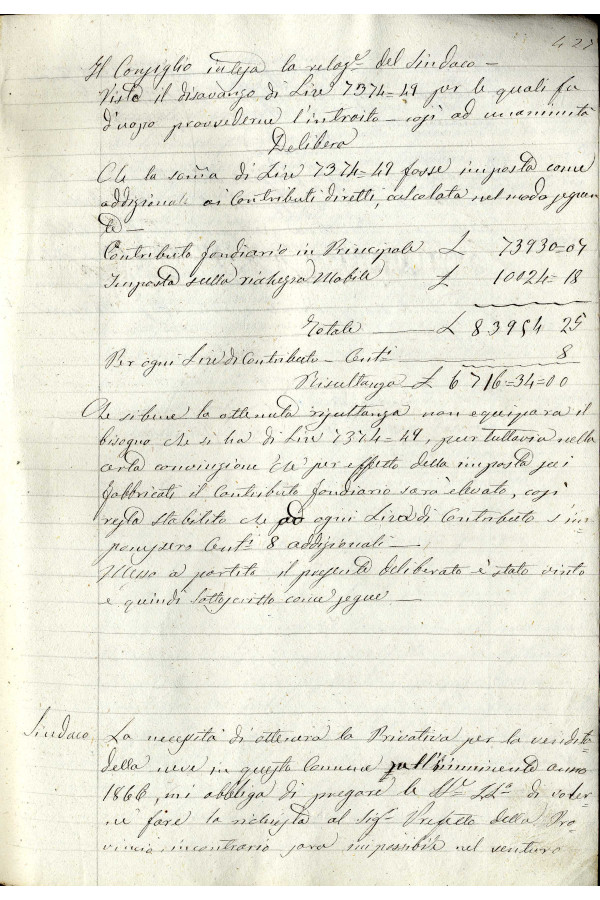 427
Il Consiglio intesa la relaz.e del Sindaco —
Visto il disavanzo di Lire 7374=49 per le quali fa
d'uopo provvederne l'introito — così ad unanimità
Delibera
Che la somma di Lire 7374=49 fosse imposta come
addizionale ai Contributi diretti, calcolata nel modo seguen
te —
Contributo fondiario in Principale £ 73930=07
Imposta sulla richezza Mobile £ 10024=18
Totale — £ 83954 25
Per ogni Lire di Contributo — Cent.i — 8
Risultanza £ 6716=34=00
Che sibene la ottenuta risultanza non equipara il
bisogno che si ha di Lire 7374=49, pur tuttavia nella
certa convinzione che per effetto della imposta sui
fabbricati il Contributo fondiario sarà elevato, così
resta stabilito che ad ogni Lira di Contributo s'im-
ponessero Cent.i 8 addizionali —
Messo a partito il presente deliberato è stato vinto
e quindi sottoscritto come segue —
Sindaco La necessità di ottenere la Privativa per la vendita
della neve in questo Comune nell'imminente anno
1866, mi obbliga di pregare le di voler-
ne fare la richiesta al Sig.r Prefetto della Pro-
vincia, incontrario sarà impossibile nel venturo